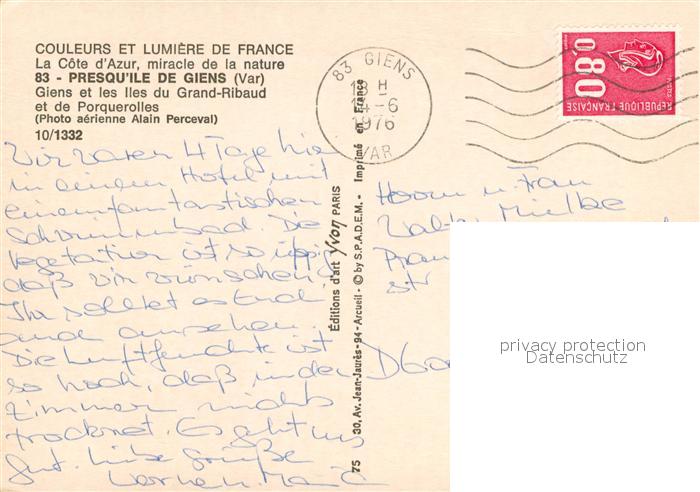 COULEURS ET LUMIÈRE DE FRANCE
La Côte d'Azur, miracle de la nature
83 - PRESQU'ILE DE GIENS (Var)
Giens et les Iles du Grand-Ribaud
et de Porquerolles
(Photo aérienne Alain Perceval)
10/1332
Wir waren 4 Tage hier
in einem Hotel mit
einem fantastischen
Schwimmbad. Die
Vegetation ist so üppig
daß wir wünschen,
Ihr solltet es Euch
auch ansehen.
Die Luftfeuchte ist
so hoch, daß in den
Zimmern nichts
trocknet. Es geht uns
gut. Liebe Grüße
Editions d'art Yvon PARIS
75 30, Av. Jean-Jaurès-94-Arcueil - © by S.P.A.D.E.M. - Imprimé en France
83 GIENS
18 H
14-6
1976
VAR
0.80
REPUBLIQUE FRANÇAISE
POSTES
Herrn u. Frau
Mielke
str
D 600
privacy protection
Datenschutz